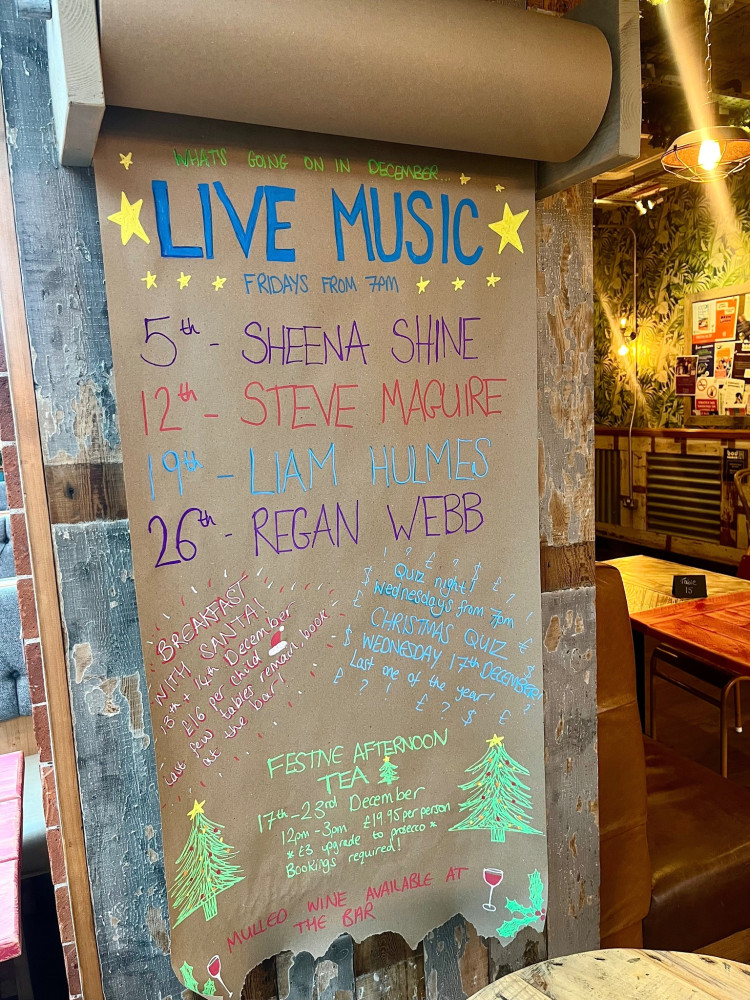 WHAT'S GOING ON IN DECEMBER...
LIVE MUSIC
FRIDAYS FROM 7PM
5th - SHEENA SHINE
12th - STEVE MAGUIRE
19th - LIAM HULMES
26th - REGAN WEBB
BREAKFAST
WITH SANTA!
13th + 14th December
£16 per child
Last few tables remain, book
at the bar!
! ? £ ? !
$ Quiz night! £ ? !
£ Wednesdays from 7pm
CHRISTMAS QUIZ £
$ WEDNESDAY 17TH DECEMBER!
£ Last one of the year! ?
£ ? ! £ ? $ £
FESTIVE AFTERNOON
TEA
17th - 23rd December
12pm - 3pm £19.95 per person
* £3 upgrade to prosecco *
Bookings required!
MULLED WINE AVAILABLE AT
THE BAR
TABLE
15